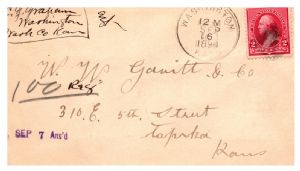 Graham
Washington
Wash Co Kans
WASHINGTON
12 M
SEP
6
1894
W. W. Gavitt & Co
100
310 E. 5th Street
Topeka
Kans
SEP 7 Ans'd